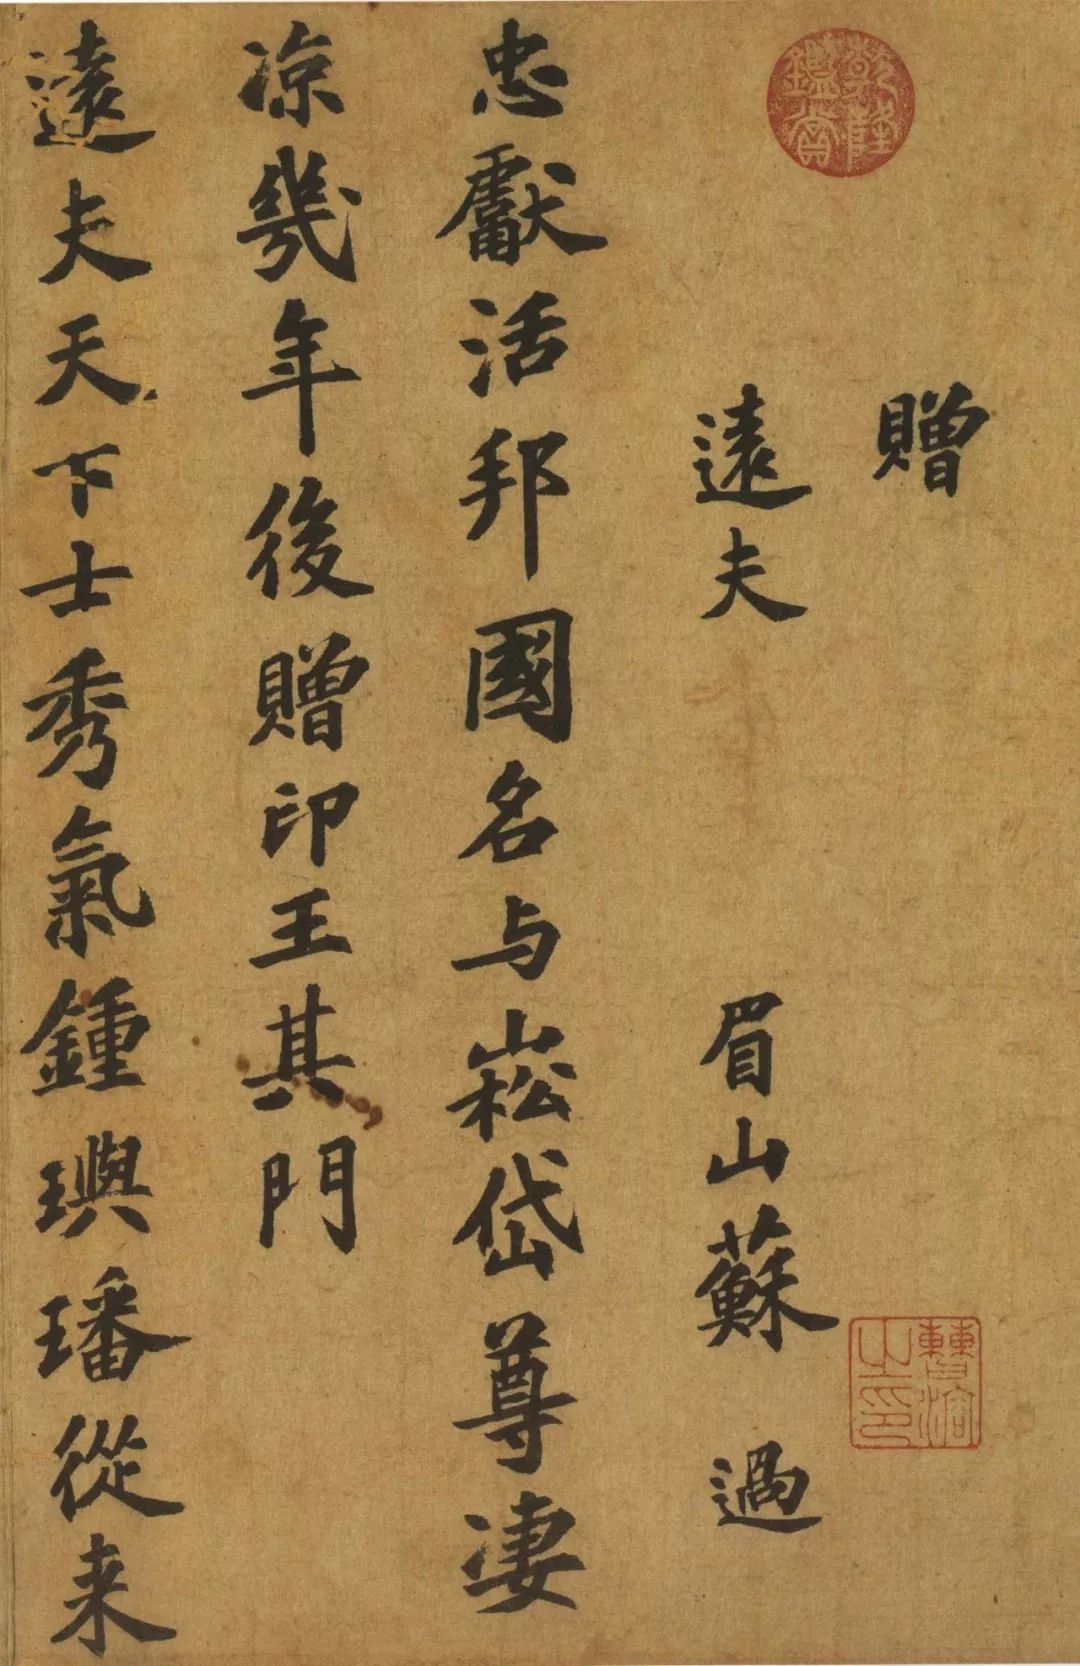 贈
遠夫
眉山蘇過
忠獻活邦國名与崧岱尊凄
凉幾年後贈印王其門
遠夫天下士秀氣鍾璵璠從来
乾隆鑑賞
曹溶之印